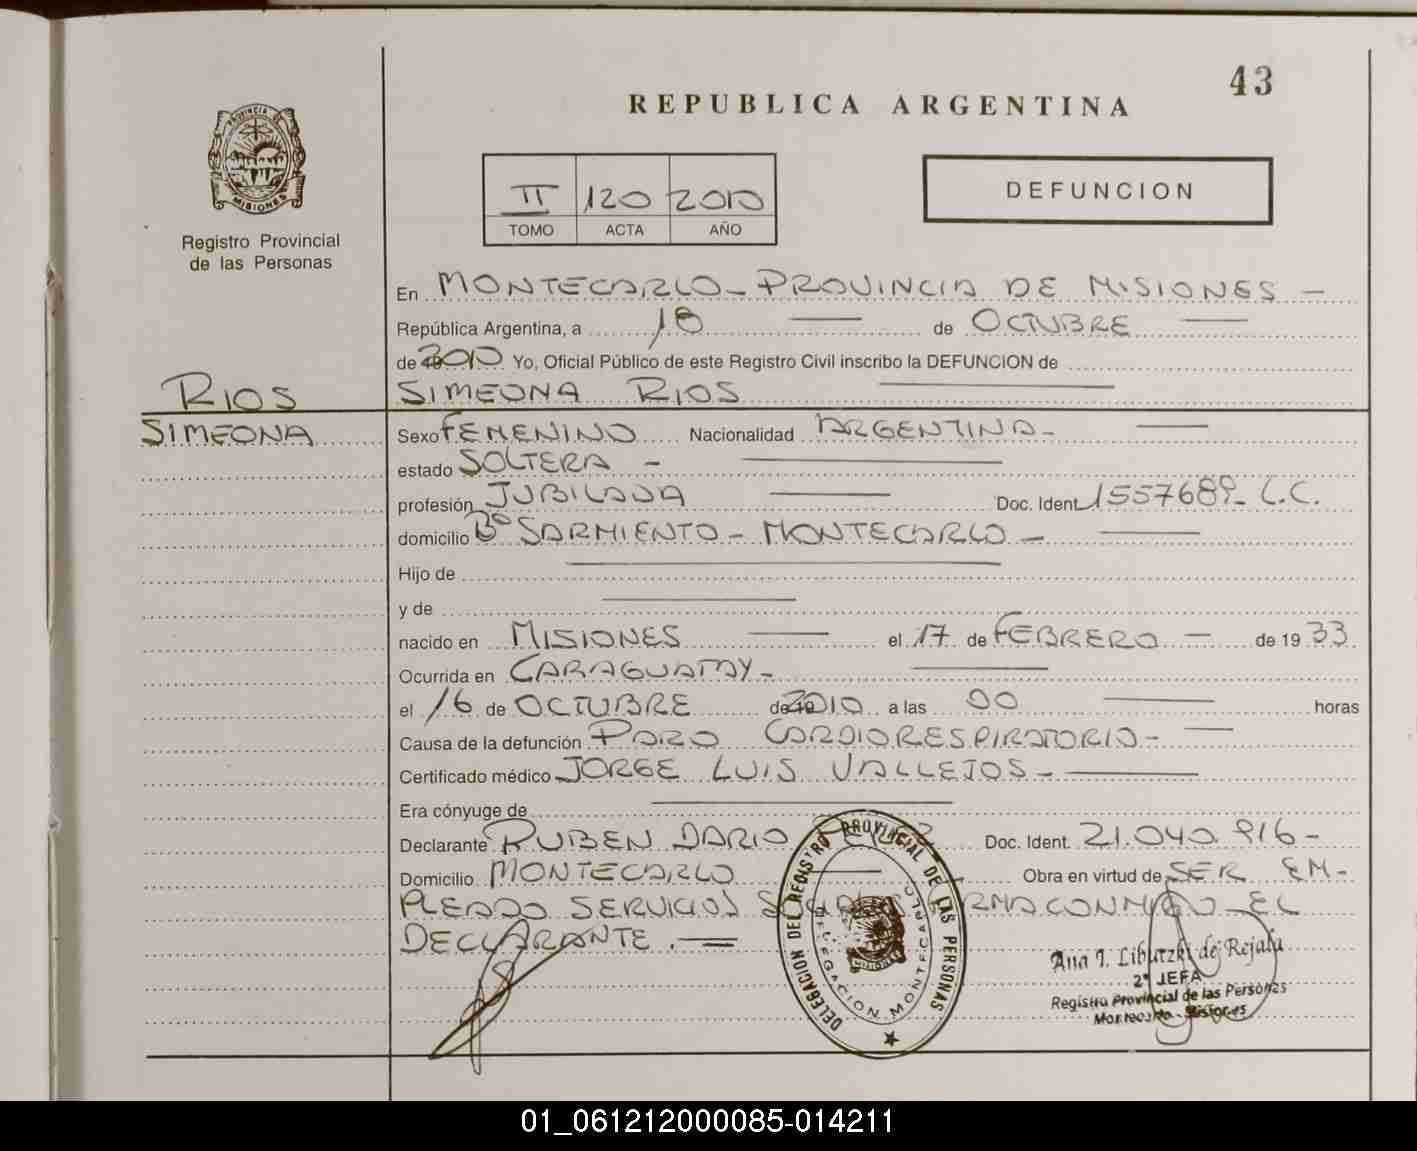 43
REPUBLICA ARGENTINA
PROVINCIA DE
MISIONES
Registro Provincial
de las Personas
II 120 2010
TOMO ACTA AÑO
DEFUNCION
En MONTECARLO - PROVINCIA DE MISIONES —
República Argentina, a 18 — de OCTUBRE —
de 2010 Yo, Oficial Público de este Registro Civil inscribo la DEFUNCION de
RIOS
SIMEONA
SIMEONA RIOS —
Sexo FEMENINO Nacionalidad ARGENTINA - —
estado SOLTERA - —
profesión JUBILADA — Doc. Ident. 1557689- L.C.
domicilio Bº SARMIENTO - MONTECARLO - —
Hijo de —
y de —
nacido en MISIONES — el 17 de FEBRERO — de 1933
Ocurrida en CARAGUATAY - —
el 16 de OCTUBRE de 2010 a las 00 — horas
Causa de la defunción PARO CARDIORESPIRATORIO - —
Certificado médico JORGE LUIS VALLEJOS - —
Era cónyuge de —
Declarante RUBEN DARIO Doc. Ident. 21.040.916 -
Domicilio MONTECARLO — Obra en virtud de SER EM-
PLEADO SERVICIOS SOCIALES FIRMA CONMIGO EL
DECLARANTE. —
DELEGACION DEL REGISTRO PROVINCIAL DE LAS PERSONAS
DELEGACION MONTECARLO
MISIONES
Ana I. Libutzki de Rejala
2º JEFA
Registro Provincial de las Personas
Montecarlo - Misiones
01_061212000085-014211